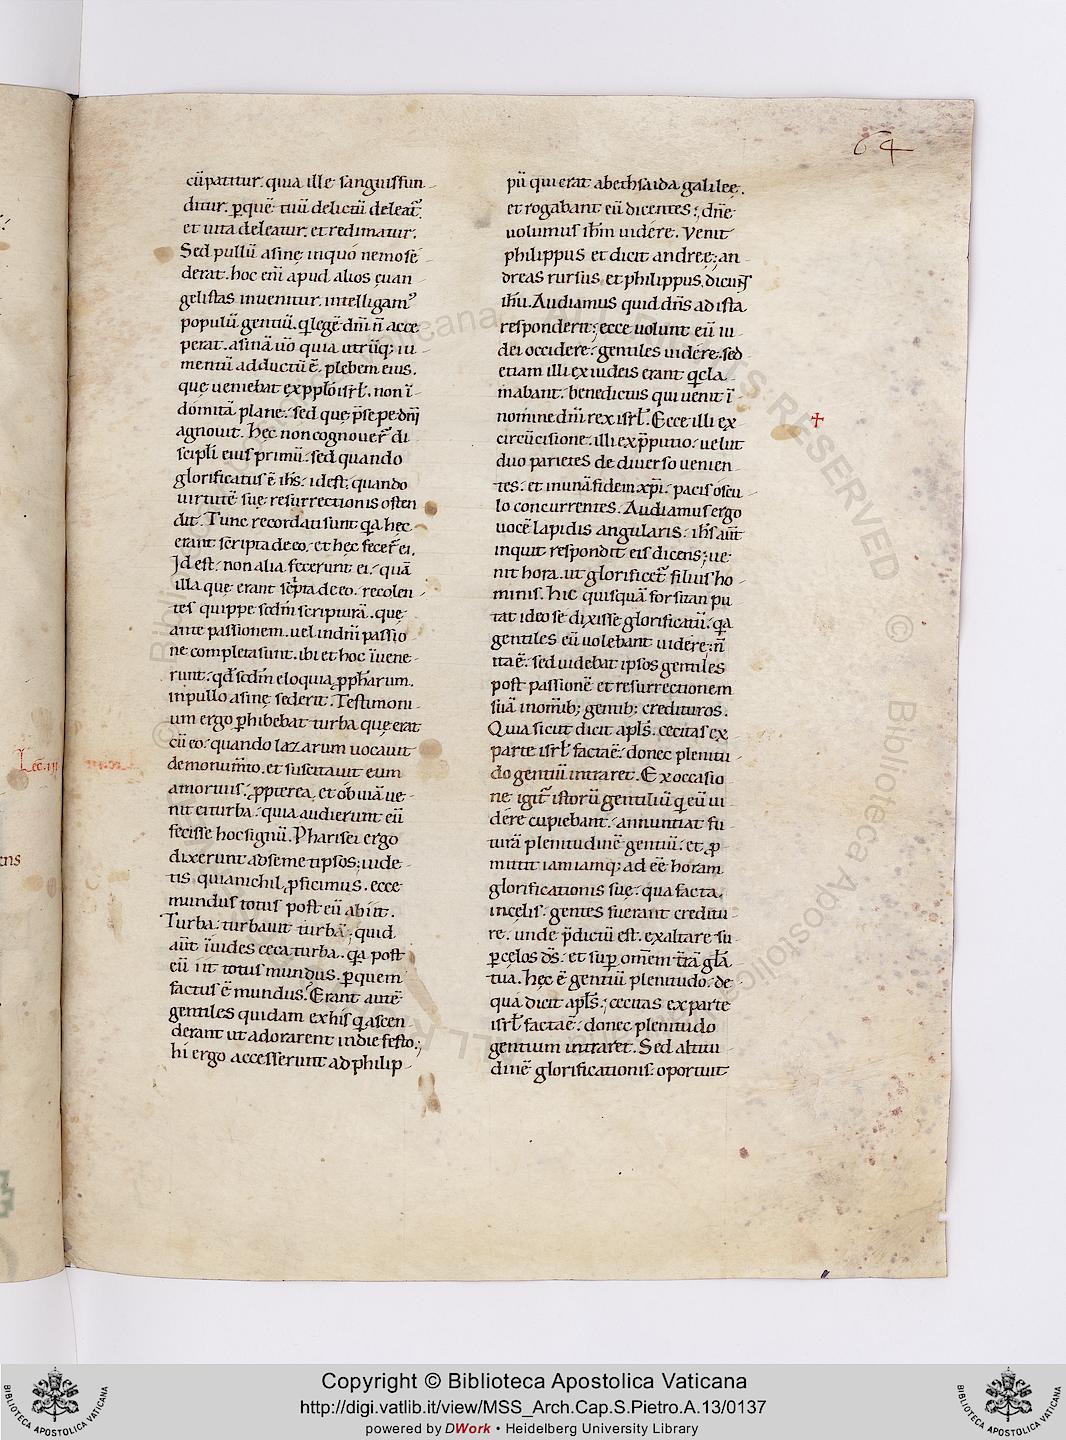 64
cũ patitur. quia ille sanguis fun
ditur. ꝑ quẽ tuũ delictũ deleat̃.
et uita deleatur. et redimatur.
Sed pullũ asinę in quo nemo se
derat. hoc eni᷑ apud alios euan
gelistas inuenitur. intelligam᷒
populũ gentiũ. q̇ legẽ dñi ñ acce
perat. asinã ũo quia utrũq; iu
mentũ adductũ ẽ. plebem eius.
quę ueniebat ex pplo isrł. non ĩ
domitã plane. sed que p̃sepe dñi
agnouit. Hęc non cognouer̃ di
scipli eius primũ. sed quando
glorificatus ẽ ihs̃. id est. quando
uirtutẽ suę resurrectionis osten
dit. Tunc recordati sunt q̃a hęc
erant sc̃ripta de eo. et hęc fecer̃ ei.
Id est. non alia fecerunt ei. quã
illa que erant sc̃pta de eo. recolen
tes quippe scdm̃ scripturã. quę
ante passionem. uel in dñi passio
ne completa sunt. ibi et hoc ĩuene
runt. qđ scdm̃ eloquia ꝓpharum.
in pullo asinę sederit. Testimoni
um ergo ꝑhibebat turba quę erat
cũ eo. quando lazarum uocauit
de monum̃to. et suscitauit eum
a mortuis. ꝓpterea et obuiã ue
nit ei turba. quia audierunt eũ
fecisse hoc signũ. Pharisei ergo
dixerunt ad semetipsos; uide
tis quia nichil ꝓficimus. ecce
mundus totus post eũ abiit.
Turba turbauit turbã; quid
aũt ĩuides ceca turba. q̃a post
eũ iit totus mundus. ꝑ quem
factus ẽ mundus. Erant autẽ
gentiles quidam ex his q̇ ascen
derant ut adorarent in die festo;
hi ergo accesserunt ad philip
pũ qui erat a bethsaida galilee.
et rogabant eũ dicentes; dñe
uolumus ihm̃ uidere. Venit
philippus et dicit andreę; an
dreas rursus et philippus. dicun̄t
ihũ. Audiamus quid dñs ad ista
responderit; ecce uolunt eũ iu
dei occidere. gentiles uidere. sed
etiam illi ex iudeis erant q̇ cla
mabant. benedictus qui uenit ĩ
nomine dñi rex isrł. Ecce illi ex
circũcisione. illi ex p̃putio. uelut
duo parietes de diuerso uenien
tes. et in unã fidem xp̃i. pacis oscu
lo concurrentes. Audiamus ergo
uocẽ lapidis angularis. ihs aũt
inquit respondit eis dicens; ue
nit hora. ut glorificet̃ filius ho
minis. hic quisquã forsitan pu
tat ideo se dixisse glorificatũ. q̃a
gentiles eũ uolebant uidere; ñ
ita ẽ. sed uidebat ipsos gentiles
post passionẽ et resurrectionem
suã in om̃ib; gentib; credituros.
Quia sicut dicit apls̃. cecitas ex
parte isrł facta ẽ. donec plenitu
do gentiũ intraret. Ex occasio
ne igit̃ istorũ gentiliũ q̇ eũ ui
dere cupiebant. annuntiat fu
turã plenitudinẽ gentiũ. et ꝓ
mittit iam iamq; adẽẽ horam
glorificationis suę. qua facta.
in cęlis. gentes fuerant creditu
re. unde p̃dictũ est. exaltare su
ꝑ celos ds̃. et suꝑ omem t̃rã gl̃a
tua. hęc ẽ gentiũ plenitudo. de
qua dicit apls̃; cecitas ex parte
isrł facta ẽ. donec plenitudo
gentium intraret. Sed altitu
dinẽ glorificationis. oportuit
Lec̃. iii
ens
Copyright © Biblioteca Apostolica Vaticana
http://digi.vatlib.it/view/MSS_Arch.Cap.S.Pietro.A.13/0137
powered by DWork • Heidelberg University Library